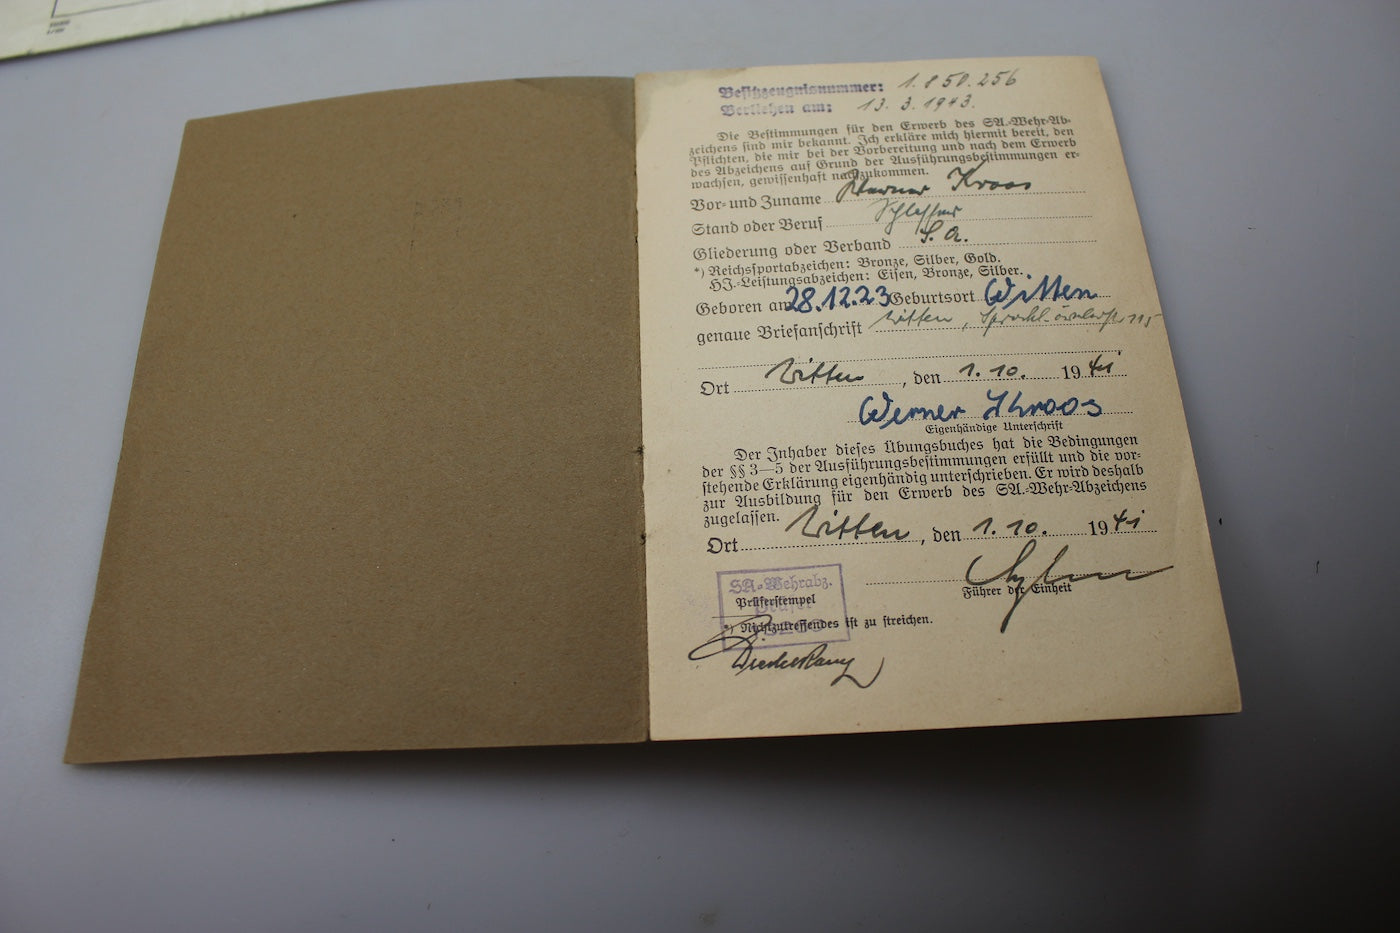 Besitzzeugnisnummer: 1.850.256
Verliehen am: 13.3.1943.
Die Bestimmungen für den Erwerb des SA.-Wehr-Ab-
zeichens sind mir bekannt. Ich erkläre mich hiermit bereit, den
Pflichten, die mir bei der Vorbereitung und nach dem Erwerb
des Abzeichens auf Grund der Ausführungsbestimmungen er-
wachsen, gewissenhaft nachzukommen.
Vor- und Zuname Werner Kroos
Stand oder Beruf Schlosser
Gliederung oder Verband S.A.
*) Reichssportabzeichen: Bronze, Silber, Gold.
HJ.-Leistungsabzeichen: Eisen, Bronze, Silber.
Geboren am 28.12.23 Geburtsort Witten
genaue Briefanschrift Witten, 115
Ort Witten, den 1.10. 1941
Werner Kroos
Eigenhändige Unterschrift
Der Inhaber dieses Übungsbuches hat die Bedingungen
der §§ 3—5 der Ausführungsbestimmungen erfüllt und die vor-
stehende Erklärung eigenhändig unterschrieben. Er wird deshalb
zur Ausbildung für den Erwerb des SA.-Wehr-Abzeichens
zugelassen.
Ort Witten, den 1.10. 1941
Führer der Einheit
SA-Wehrabz.
Prüferstempel
*) Nichtzutreffendes ist zu streichen.